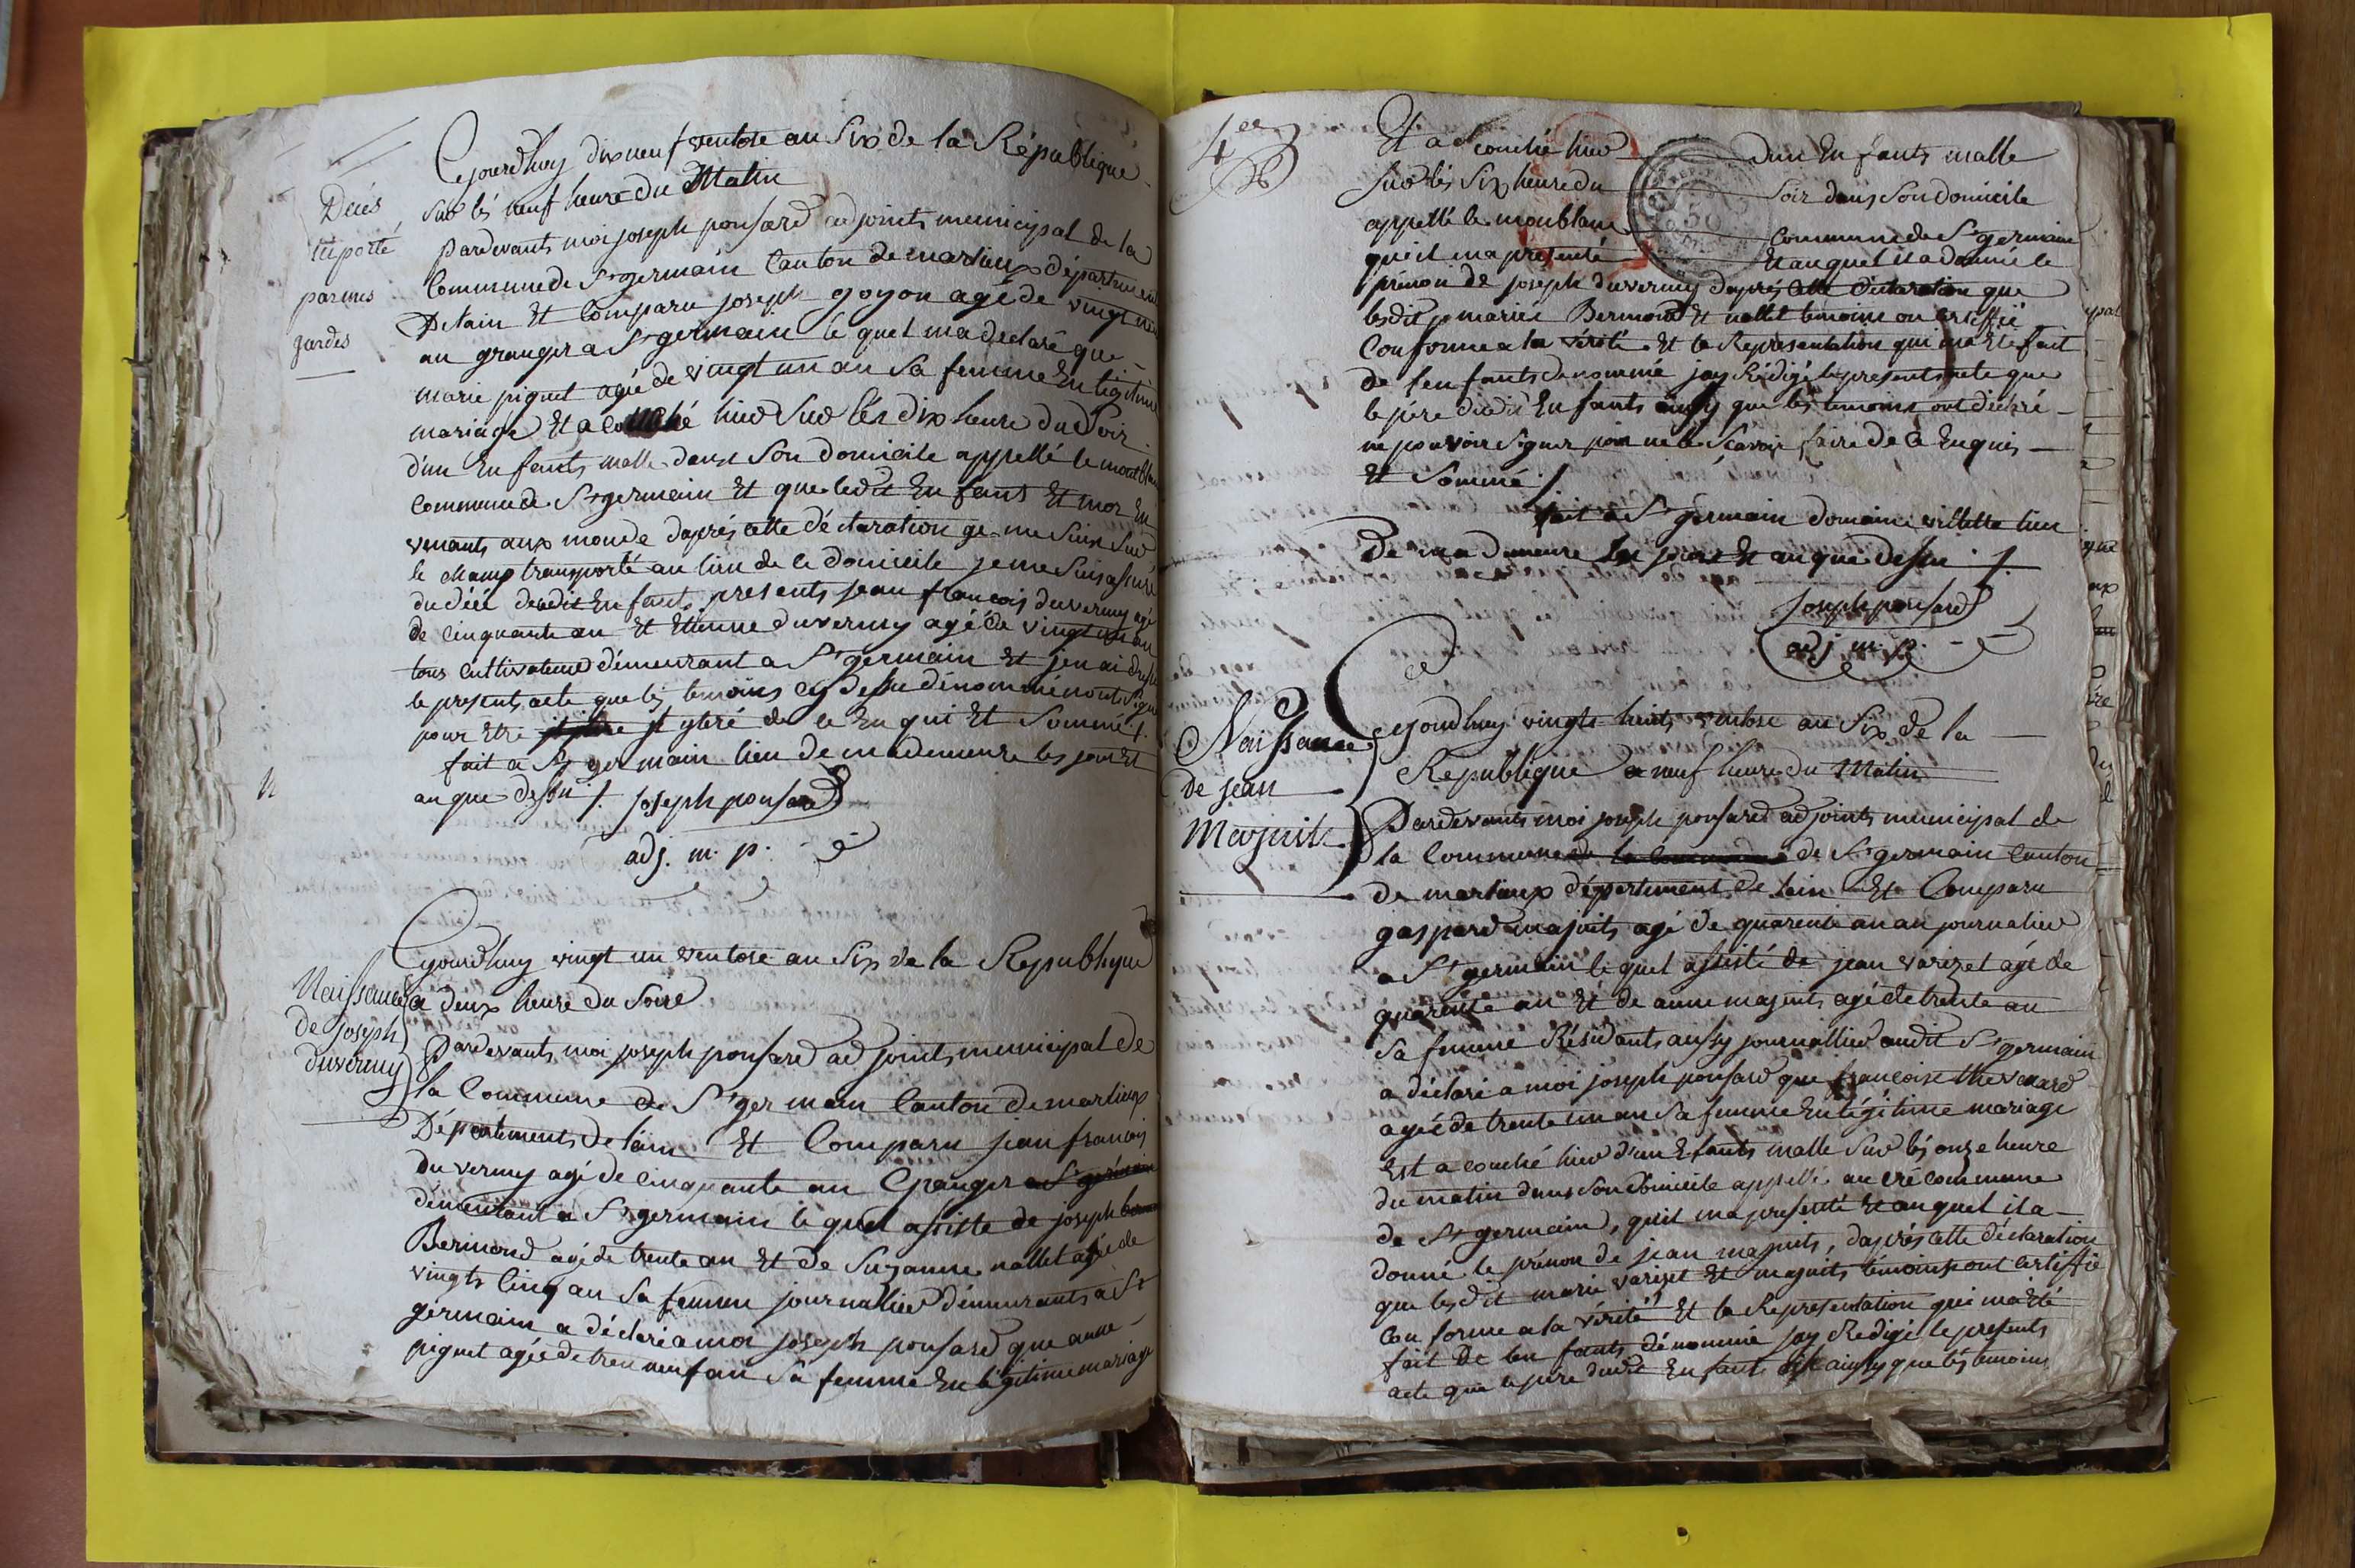 Cejourdhuy dix neuf ventose an Six de la République
Sur les neuf heure du Matin
Décés
reporté
par mes
gardes
pardevants moi joseph ponsard adjoints municipal de la
Commune de St germain Canton de marlieux département
De lain Et Comparu joseph goyon agé de vingt
an granger a St germain le quel ma déclaré que
marie piguet agé de vingt un an sa femme En légitime
mariage Et acouché hier Sur les dix heure du Soir
d'un Enfants malle dans Son domicile appellé le montblan
Commune de St germain Et que ledit Enfant Et mor En
venants aux monde daprés cette déclaration ge me Suis Sur
le champ transporté au lieu de ce domicile je me Suis assuré
du décé dudit Enfants, presents jean francois duvernay agé
de cinquante an Et Etienne duvernay agé de vingt un an
tous cultivateur démeurant a St germain Et jen ai dressé
le presents acte que les temoins cy dessu dénommé nonts Signé
pour Etre ytéré de ce Enqui Et Sommé /.
fait a St germain lieu de ma demeure les jour Et
an que dessu /. joseph ponsard
adj. m. p.
Cejourdhuy vingt un ventose an Six de la Republique
a deux heure du Soire
Naissance
de joseph
duvernay
Pardevants moi joseph ponsard adjoints municipal de
la Commune de St germain Canton de marlieux
Département de lain Et Comparu jean francois
duvernay agé de cinquante an Granger a St germain
démeurant a St germain le quel assiste de joseph
Bermond agé de trente an Et de Suzanne nallet agée de
vingts Cinq an Sa femme journallier démeurants a St
germain a déclaré a moi joseph ponsard que anne
piguet agée de tren neuf an Sa femme En légitime mariage
4ee
Et acouché hier dun Enfants malle
Sur lés Six heure du Soir dans Son domicile
appellé le monblanc Commune de St germain
quil ma presenté Et auquel il a donné le
prénon de joseph duvernay daprés cette déclaration que
lesdit mariée Bermond Et nallet temoins on certiffié
Conforme a la vérité Et la Représentation qui ma Eté fait
de lenfants dénommé jay Rédigé le presents acte que
le pére dudit Enfants ainsy que les temoins ont déclaré
ne pouvoir Signer pour ne le Scavoir faire de ce Enquis
Et Sommé /
fait a St germain domaine villette lieu
De ma demeure les jour Et an que dessu /.
joseph ponsard
adj. m. p.
Naissance
de jean
Majuits
Cejourdhuy vingts huits ventose an Six de la
République a neuf heure du Matin
Pardevants moi joseph ponsard adjoints municipal de
la Commune de la Commune de St germain Canton
de marlieux département de lain Et Comparu
gaspard majuits agé de quarente an an journalier
a St germain le quel assisté de jean varizet agé de
quarente an Et de anne majuits agé de trente an
Sa femme Résidants aussy journallier audit St germain
a déclaré a moi joseph ponsard que francoise thevenard
agée de trente un an Sa femme En légitime mariage
Est acouché hier d'un Efants malle Sur les onze heure
du matin dans Son domicile appellé au cré commune
de St germain, quil ma presenté Et auquel il a
donné le prénon de jean majuits, daprés cette déclaration
que lesdit marié varizet Et majuits témoins ont certiffié
Conforme a la vérité Et la Représentation qui ma Eté
fait De lenfants dénommé jay Rédigé le presents
acte que le pére dudit Enfants ainsy que lés temoins